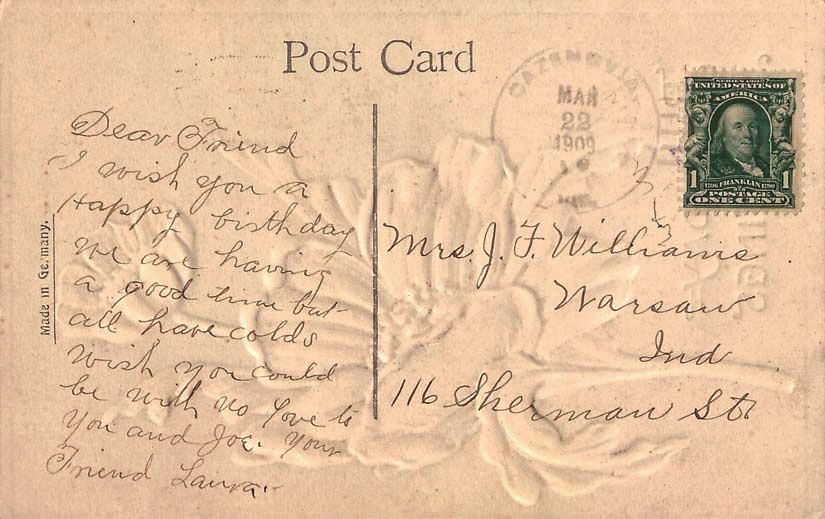 Post Card
MAR
22
1909
SERIES 1902
UNITED STATES OF
AMERICA
1 1
1706 FRANKLIN 1790
POSTAGE
ONE CENT
Made in Germany.
Dear Friend
I wish you a
Happy birthday
we are having
a good time but
all have colds
wish you could
be with us Love to
You and Joe. Your
Friend Laura.
Mrs. J. F. Williams
Warsaw
Ind
116 Sherman St.